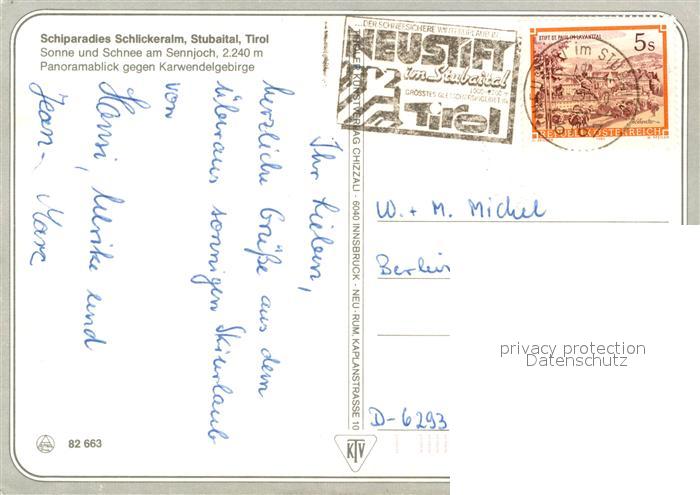 Schiparadies Schlickeralm, Stubaital, Tirol
Sonne und Schnee am Sennjoch, 2.240 m
Panoramablick gegen Karwendelgebirge
Ihr Lieben,
herzliche Grüße aus dem
überaus sonnigen Skiurlaub
von
Hansi, Ulrike und
Jean-Marc
82 663
TIROLER KUNSTVERLAG CHIZZALI - 6040 INNSBRUCK - NEU-RUM, KAPLANSTRASSE 10
KTV
...DER SCHNEESICHERE WINTERURLAUB IN
NEUSTIFT
im Stubaital
GRÖSSTES GLETSCHERSKIGEBIET IN
Tirol
STIFT ST. PAUL IM LAVANTTAL
5 S
REPUBLIK ÖSTERREICH
im
W. + M. Michel
Berlin
D-6293
privacy protection
Datenschutz